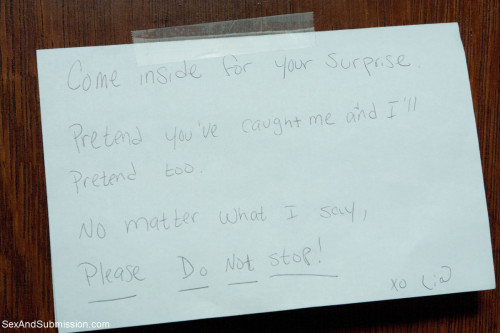 Come inside for your surprise.
Pretend you've caught me and I'll
Pretend too.
No matter what I say,
Please Do Not stop!
xo
SexAndSubmission.com